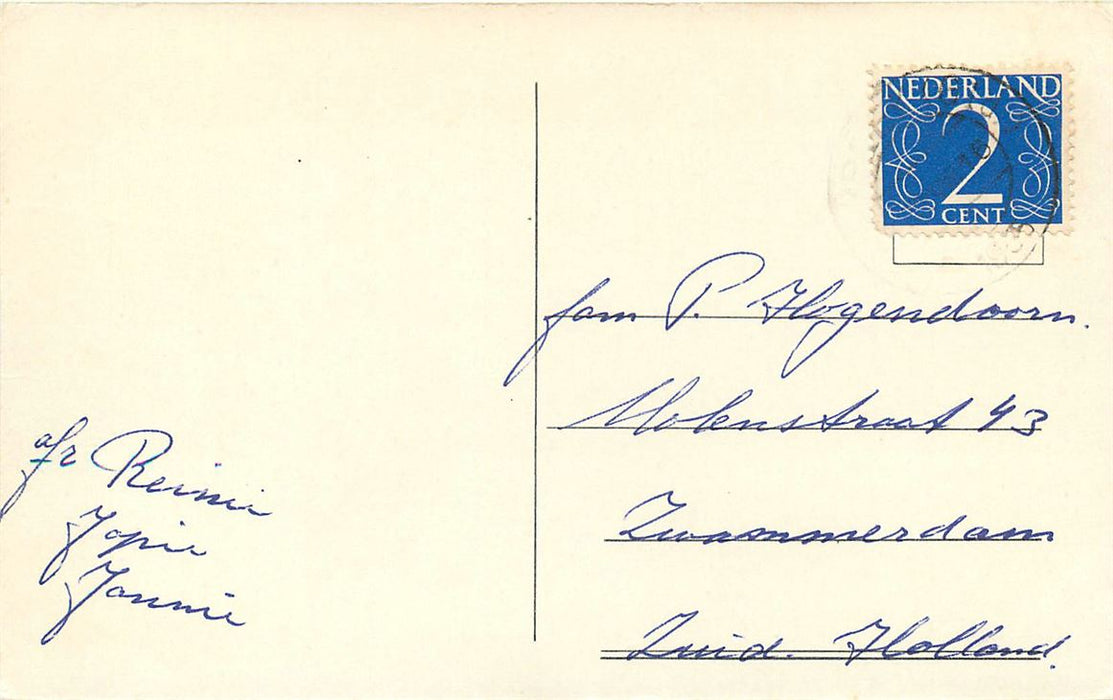 NEDERLAND
2
CENT
fam P. Hogendoorn.
Molenstraat 43
Zwammerdam
Zuid. Holland.
afz Reinie
Jopie
Jannie